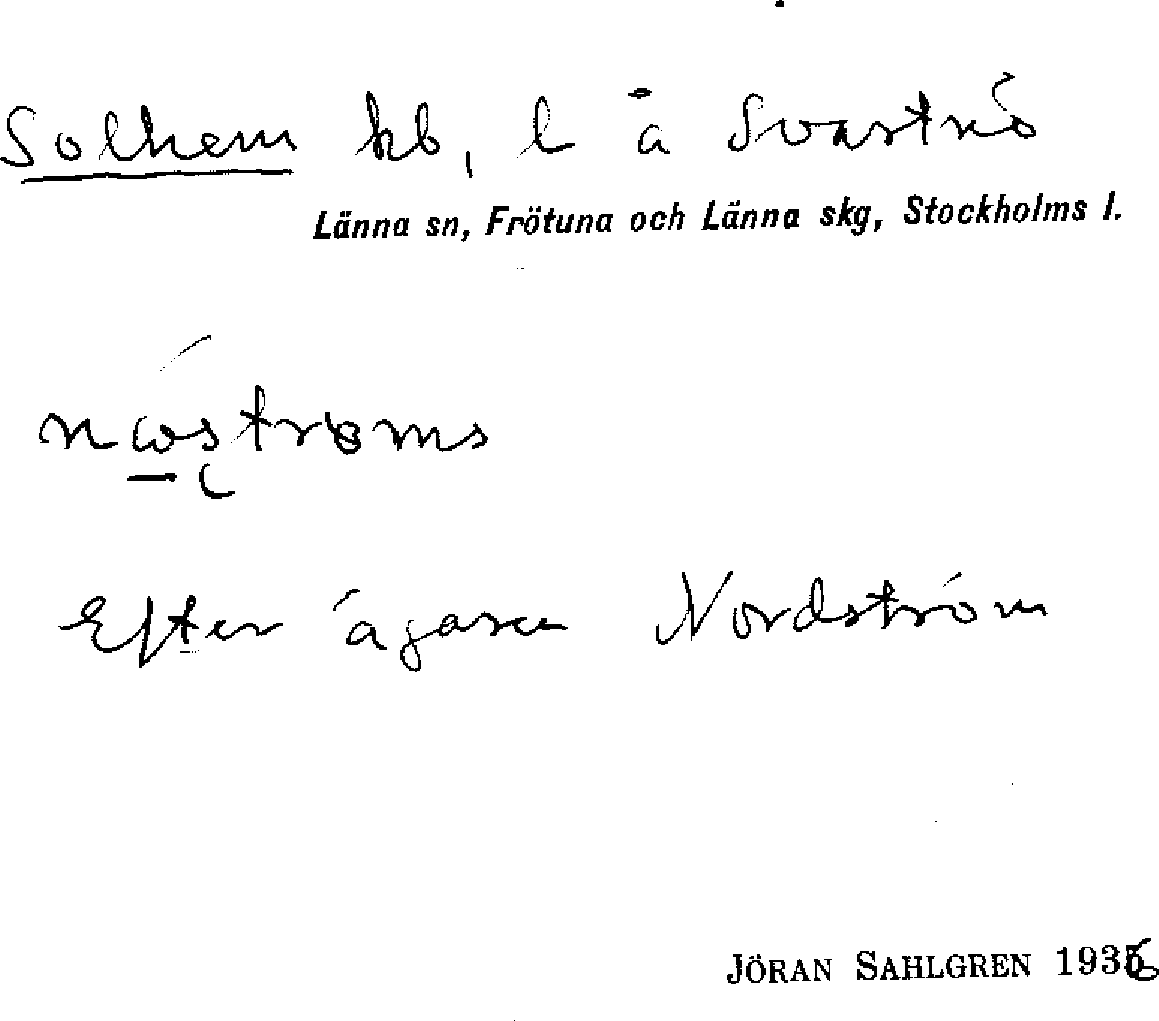 Solhem hb, l å Svartnö
Länna sn, Frötuna och Länna skg, Stockholms l.
Efter ägaren Nordström
JÖRAN SAHLGREN 1936